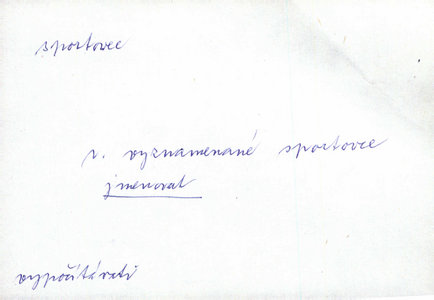 sportovec
v. vyznamenané sportovce
jmenovat
vypočítávati